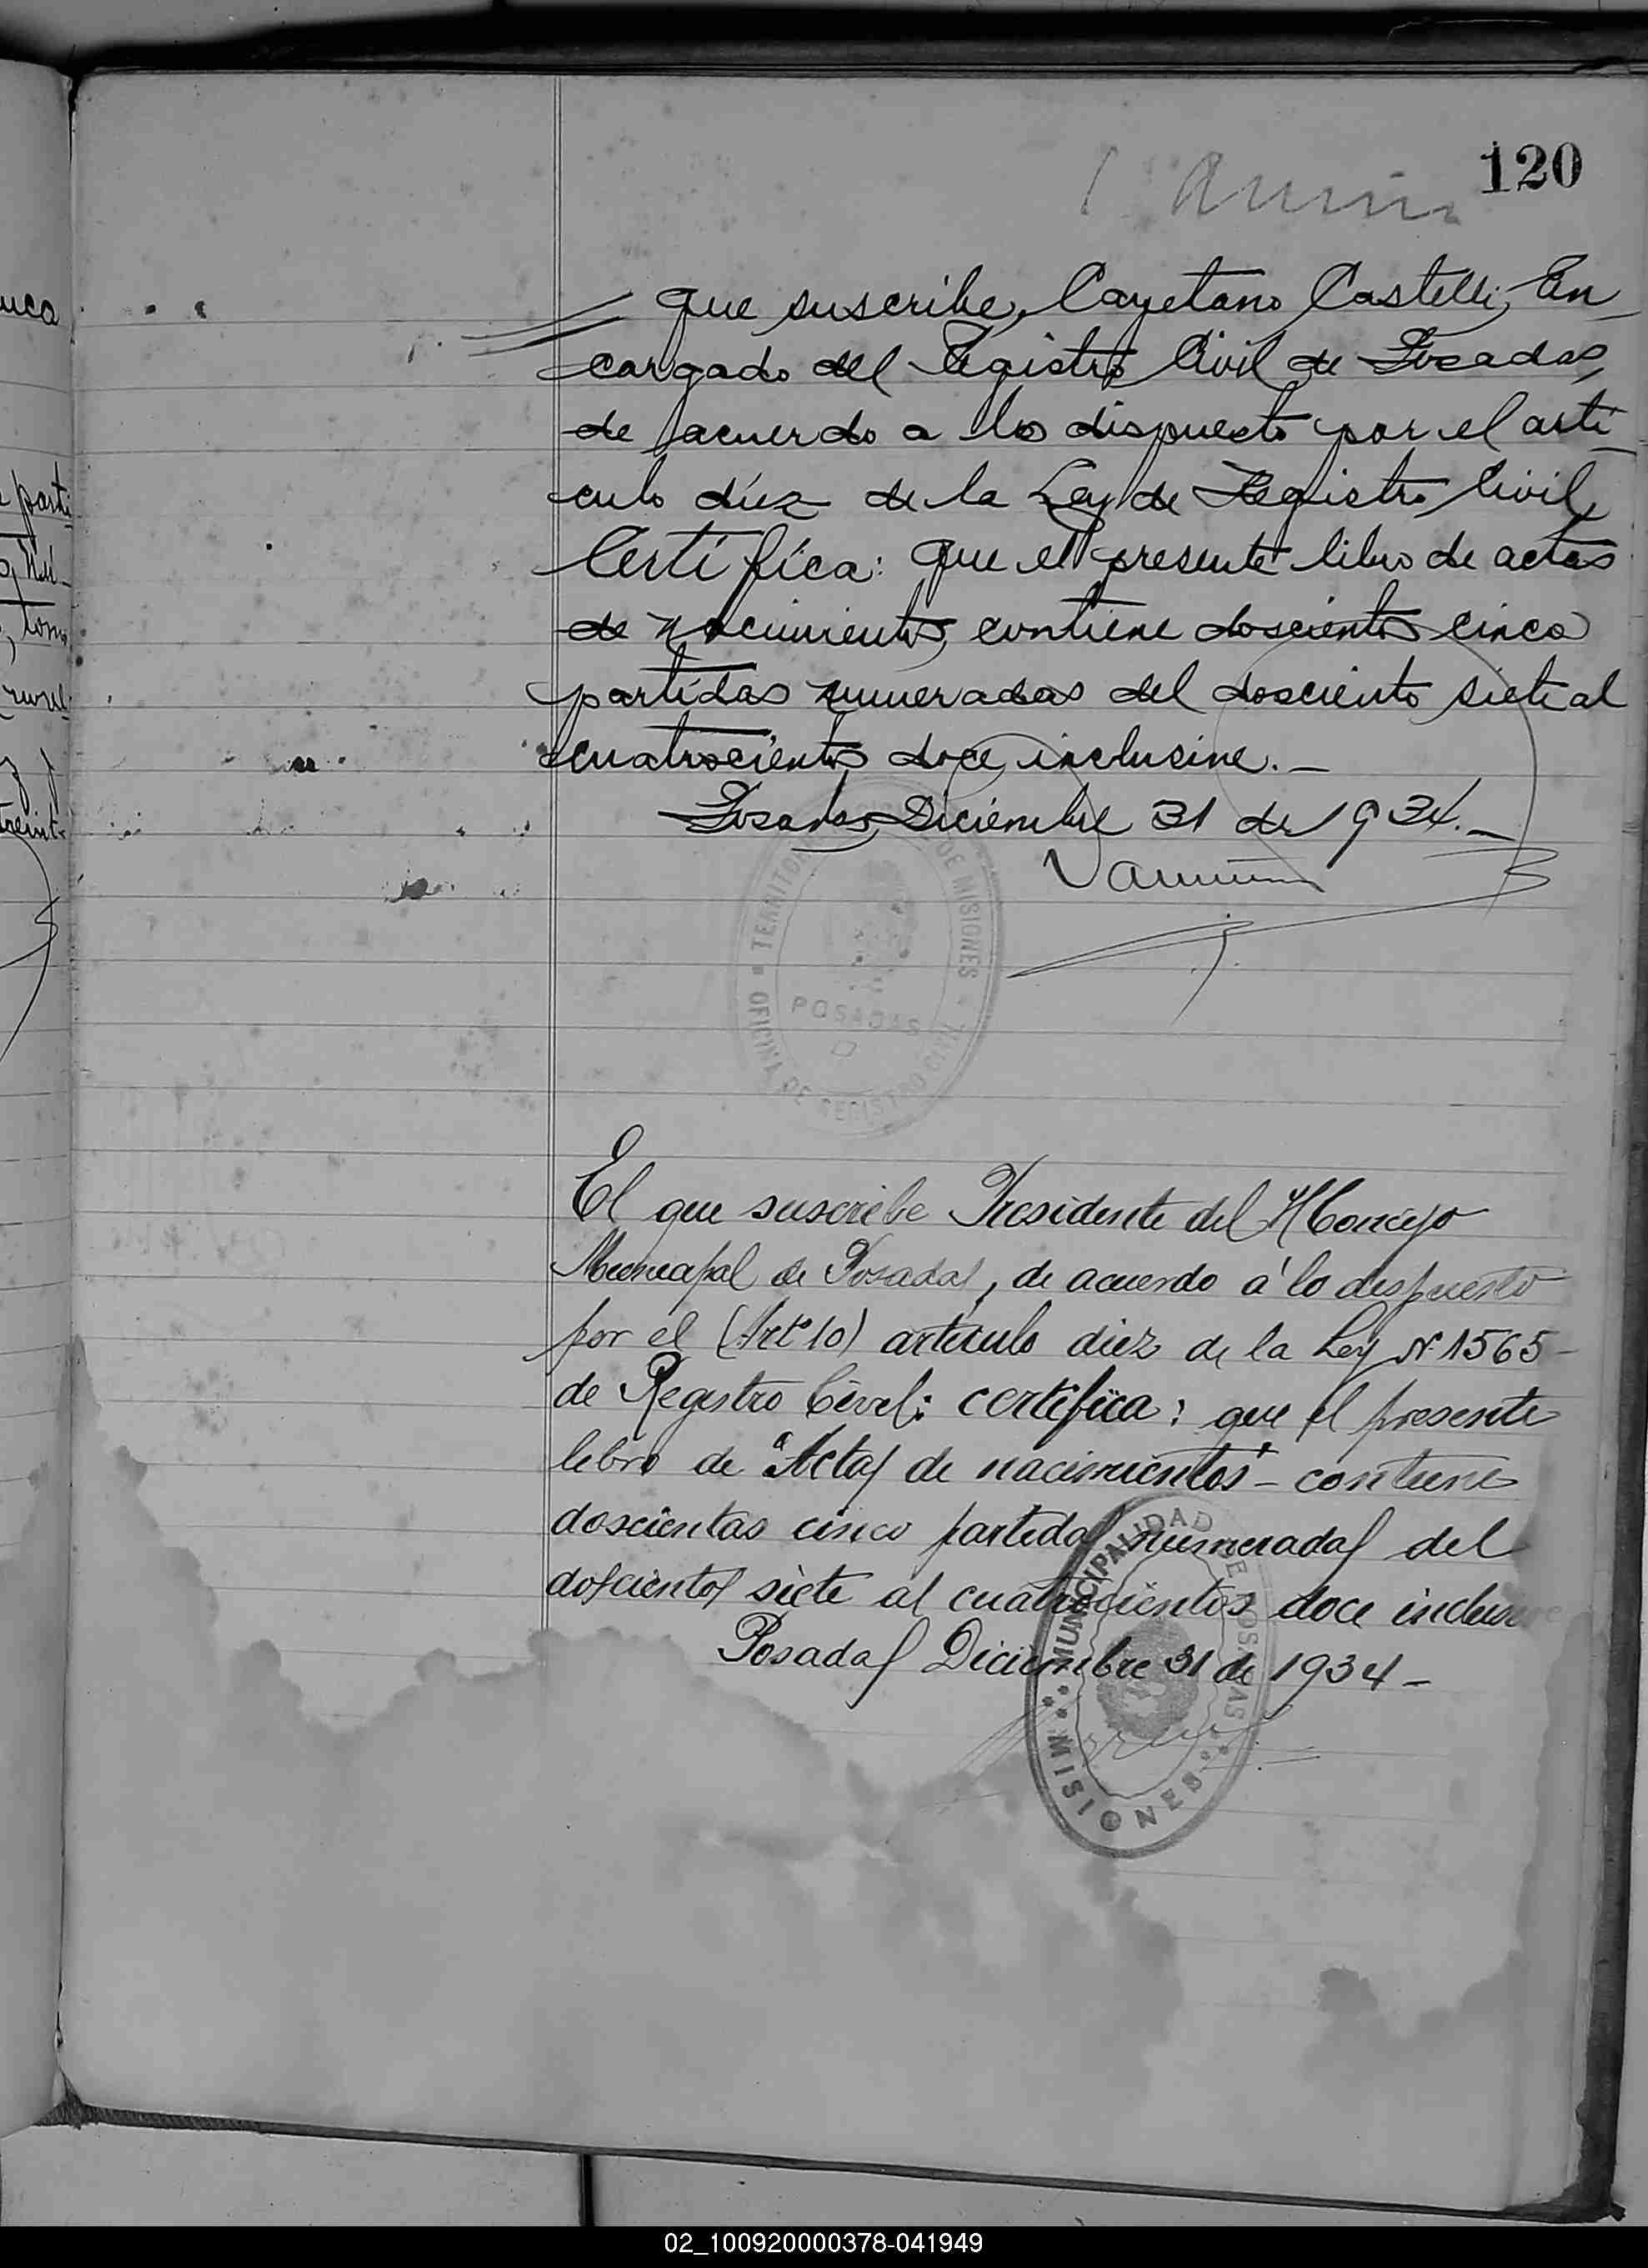 120
que suscribe, Cayetano Castelli, En
cargado del Registro Civil de Posadas,
de acuerdo a lo dispuesto por el arti
culo diez de la Ley de Registro Civil,
Certifica: que el presente libro de actas
de nacimientos, contiene doscientos cinco
partidas numeradas del dosciento siete al
cuatrocientos doce inclusive.—
Posadas, Diciembre 31 de 1934.—
TERRITORIO DE MISIONES
POSADAS
OFICINA DE REGISTRO CIVIL
El que suscribe Presidente del H Concejo
Municipal de Posadas, de acuerdo á lo dispuesto
por el (Art° 10) artículo diez de la Ley N° 1565-
de Registro Civil: certifica: que el presente
libro de "Actas de nacimientos" - contiene
doscientas cinco partidas numeradas del
doscientos siete al cuatrocientos doce inclusive
Posadas Diciembre 31 de 1934 -
MUNICIPALIDAD DE POSADAS
MISIONES
uca
parti
tom
treint
02_100920000378-041949